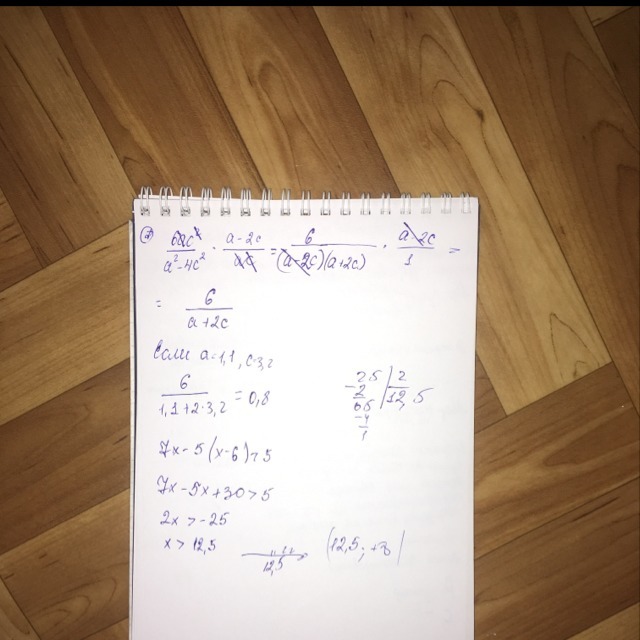 ② 6ac²/(a²-4c²) · (a-2c)/(ac) = 6/((a-2c)(a+2c)) · (a-2c)/1 =
= 6/(a+2c)
Если a=1,1, c=3,2
6/(1,1+2·3,2) = 0,8
7x-5(x-6)>5
7x-5x+30>5
2x>-25
x>12,5
12,5
(12,5; +∞)
25 | 2
-2 | 12,5
05
-4
1